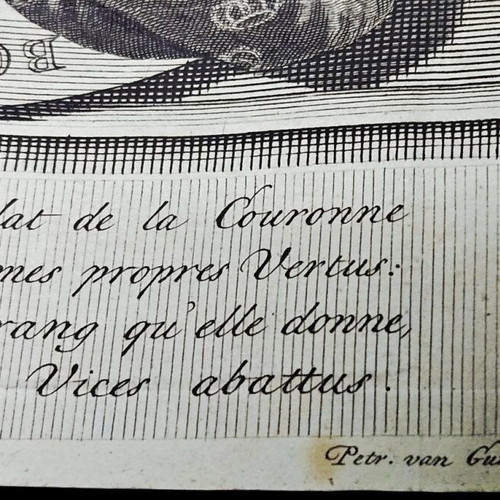 de la Couronne
propres Vertus:
rang qu'elle donne,
Vices abattus.
Petr. van